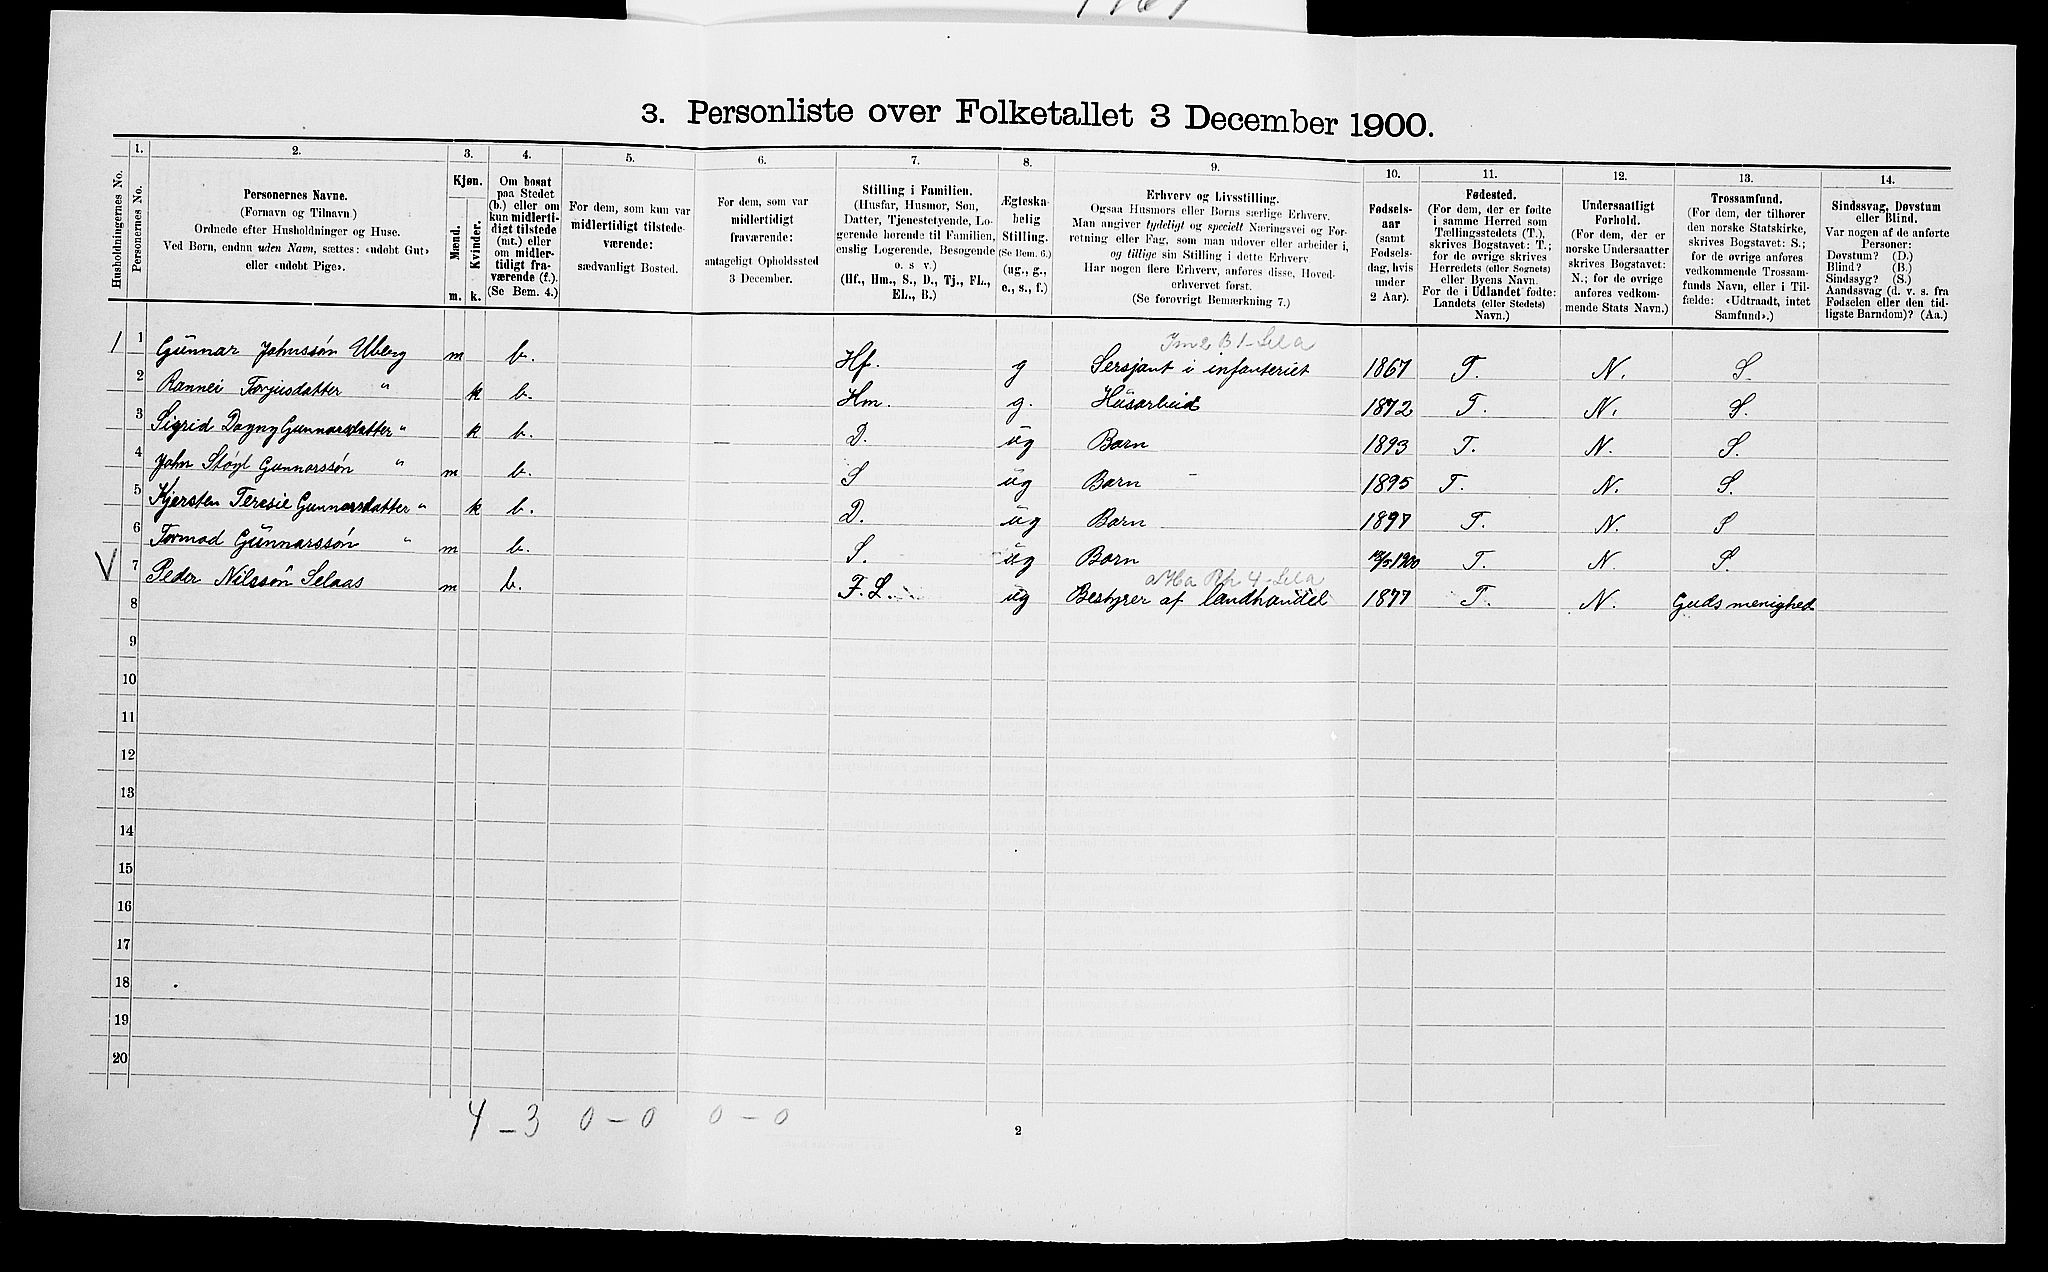 3. Personliste over Folketallet 3 December 1900.
Husholdningernes No.
1.
Personernes No.
2.
Personernes Navne.
(Fornavn og Tilnavn)
Ordnede efter Husholdninger og Huse.
Ved Børn, endnu uden Navn, sættes: «udøbt Gut»
eller «udøbt Pige».
3.
Kjøn.
Mænd.
Kvinder.
m. k.
4.
Om bosat
paa Stedet
(b.) eller om
kun midlerti-
digt tilstede
(mt.) eller
om midler-
tidigt fra-
værende (f.).
(Se Bem. 4.)
5.
For dem, som kun var
midlertidigt tilstede-
værende:
sædvanligt Bosted.
6.
For dem, som var
midlertidigt
fraværende:
antageligt Opholdssted
3 December.
7.
Stilling i Familien.
(Husfar, Husmor, Søn,
Datter, Tjenestetyende, Lo-
gerende hørende til Familien,
enslig Logerende, Besøgende
o. s v.)
(Hf., Hm., S., D., Tj., FL.,
EL., B.)
8.
Ægteska-
belig
Stilling.
(Se Bem. 6.)
(ug., g.,
e., s., f.)
9.
Erhverv og Livsstilling.
Ogsaa Husmors eller Børns særlige Erhverv.
Man angiver tydeligt og specielt Næringsvei og For-
retning eller Fag, som man udøver eller arbeider i,
og tillige sin Stilling i dette Erhverv.
Har nogen flere Erhverv, anføres disse, Hoved-
erhvervet først.
(Se forøvrigt Bemærkning 7.)
10.
Fødsels-
aar
(samt
Fødsels-
dag, hvis
under
2 Aar).
11.
Fødested.
(For dem, der er fødte
i samme Herred som
Tællingsstedets (T.),
skrives Bogstavet: T.;
for de øvrige skrives
Herredets (eller Sognets)
eller Byens Navn.
For de i Udlandet fødte:
Landets (eller Stedets)
Navn.)
12.
Undersaatligt
Forhold.
(For dem, der er
norske Undersaatter
skrives Bogstavet:
N.; for de øvrige
anføres vedkom-
mende Stats Navn.)
13.
Trossamfund.
(For dem, der tilhører
den norske Statskirke,
skrives Bogstavet: S.;
for de øvrige anføres
vedkommende Trossam-
funds Navn, eller i Til-
fælde: «Udtraadt, intet
Samfund».)
14.
Sindssvag, Døvstum
eller Blind.
Var nogen af de anførte
Personer:
Døvstum? (D.)
Blind? (B.)
Sindssyg? (S.)
Aandssvag (d. v. s. fra
Fødselen eller den tid-
ligste Barndom)? (Aa.)
1 1 Gunnar Johnssøn Uberg m b. Hf. g Sersjant i infanteriet 1867 T. N. S.
2 Rannei Torjusdatter " k b. Hm. g. Husarbeid 1872 T. N. S.
3 Sigrid Dagny Gunnarsdatter " k b. D. ug Barn 1893 T. N. S.
4 John Støyl Gunnarssøn " m b. S ug Barn 1895 T. N. S.
5 Kjersten Teresie Gunnarsdatter " k b. D. ug Barn 1897 T. N. S
6 Tormod Gunnarssøn " m b. S. ug Barn 1900 T. N. S.
V 7 Peder Nilssøn Selaas m b. F. L. ug Bestyrer af landhandel 1877 T. N. Guds menighed
8
9
10
11
12
13
14
15
16
17
18
19
20
4 – 3 0 – 0 0 – 0
2